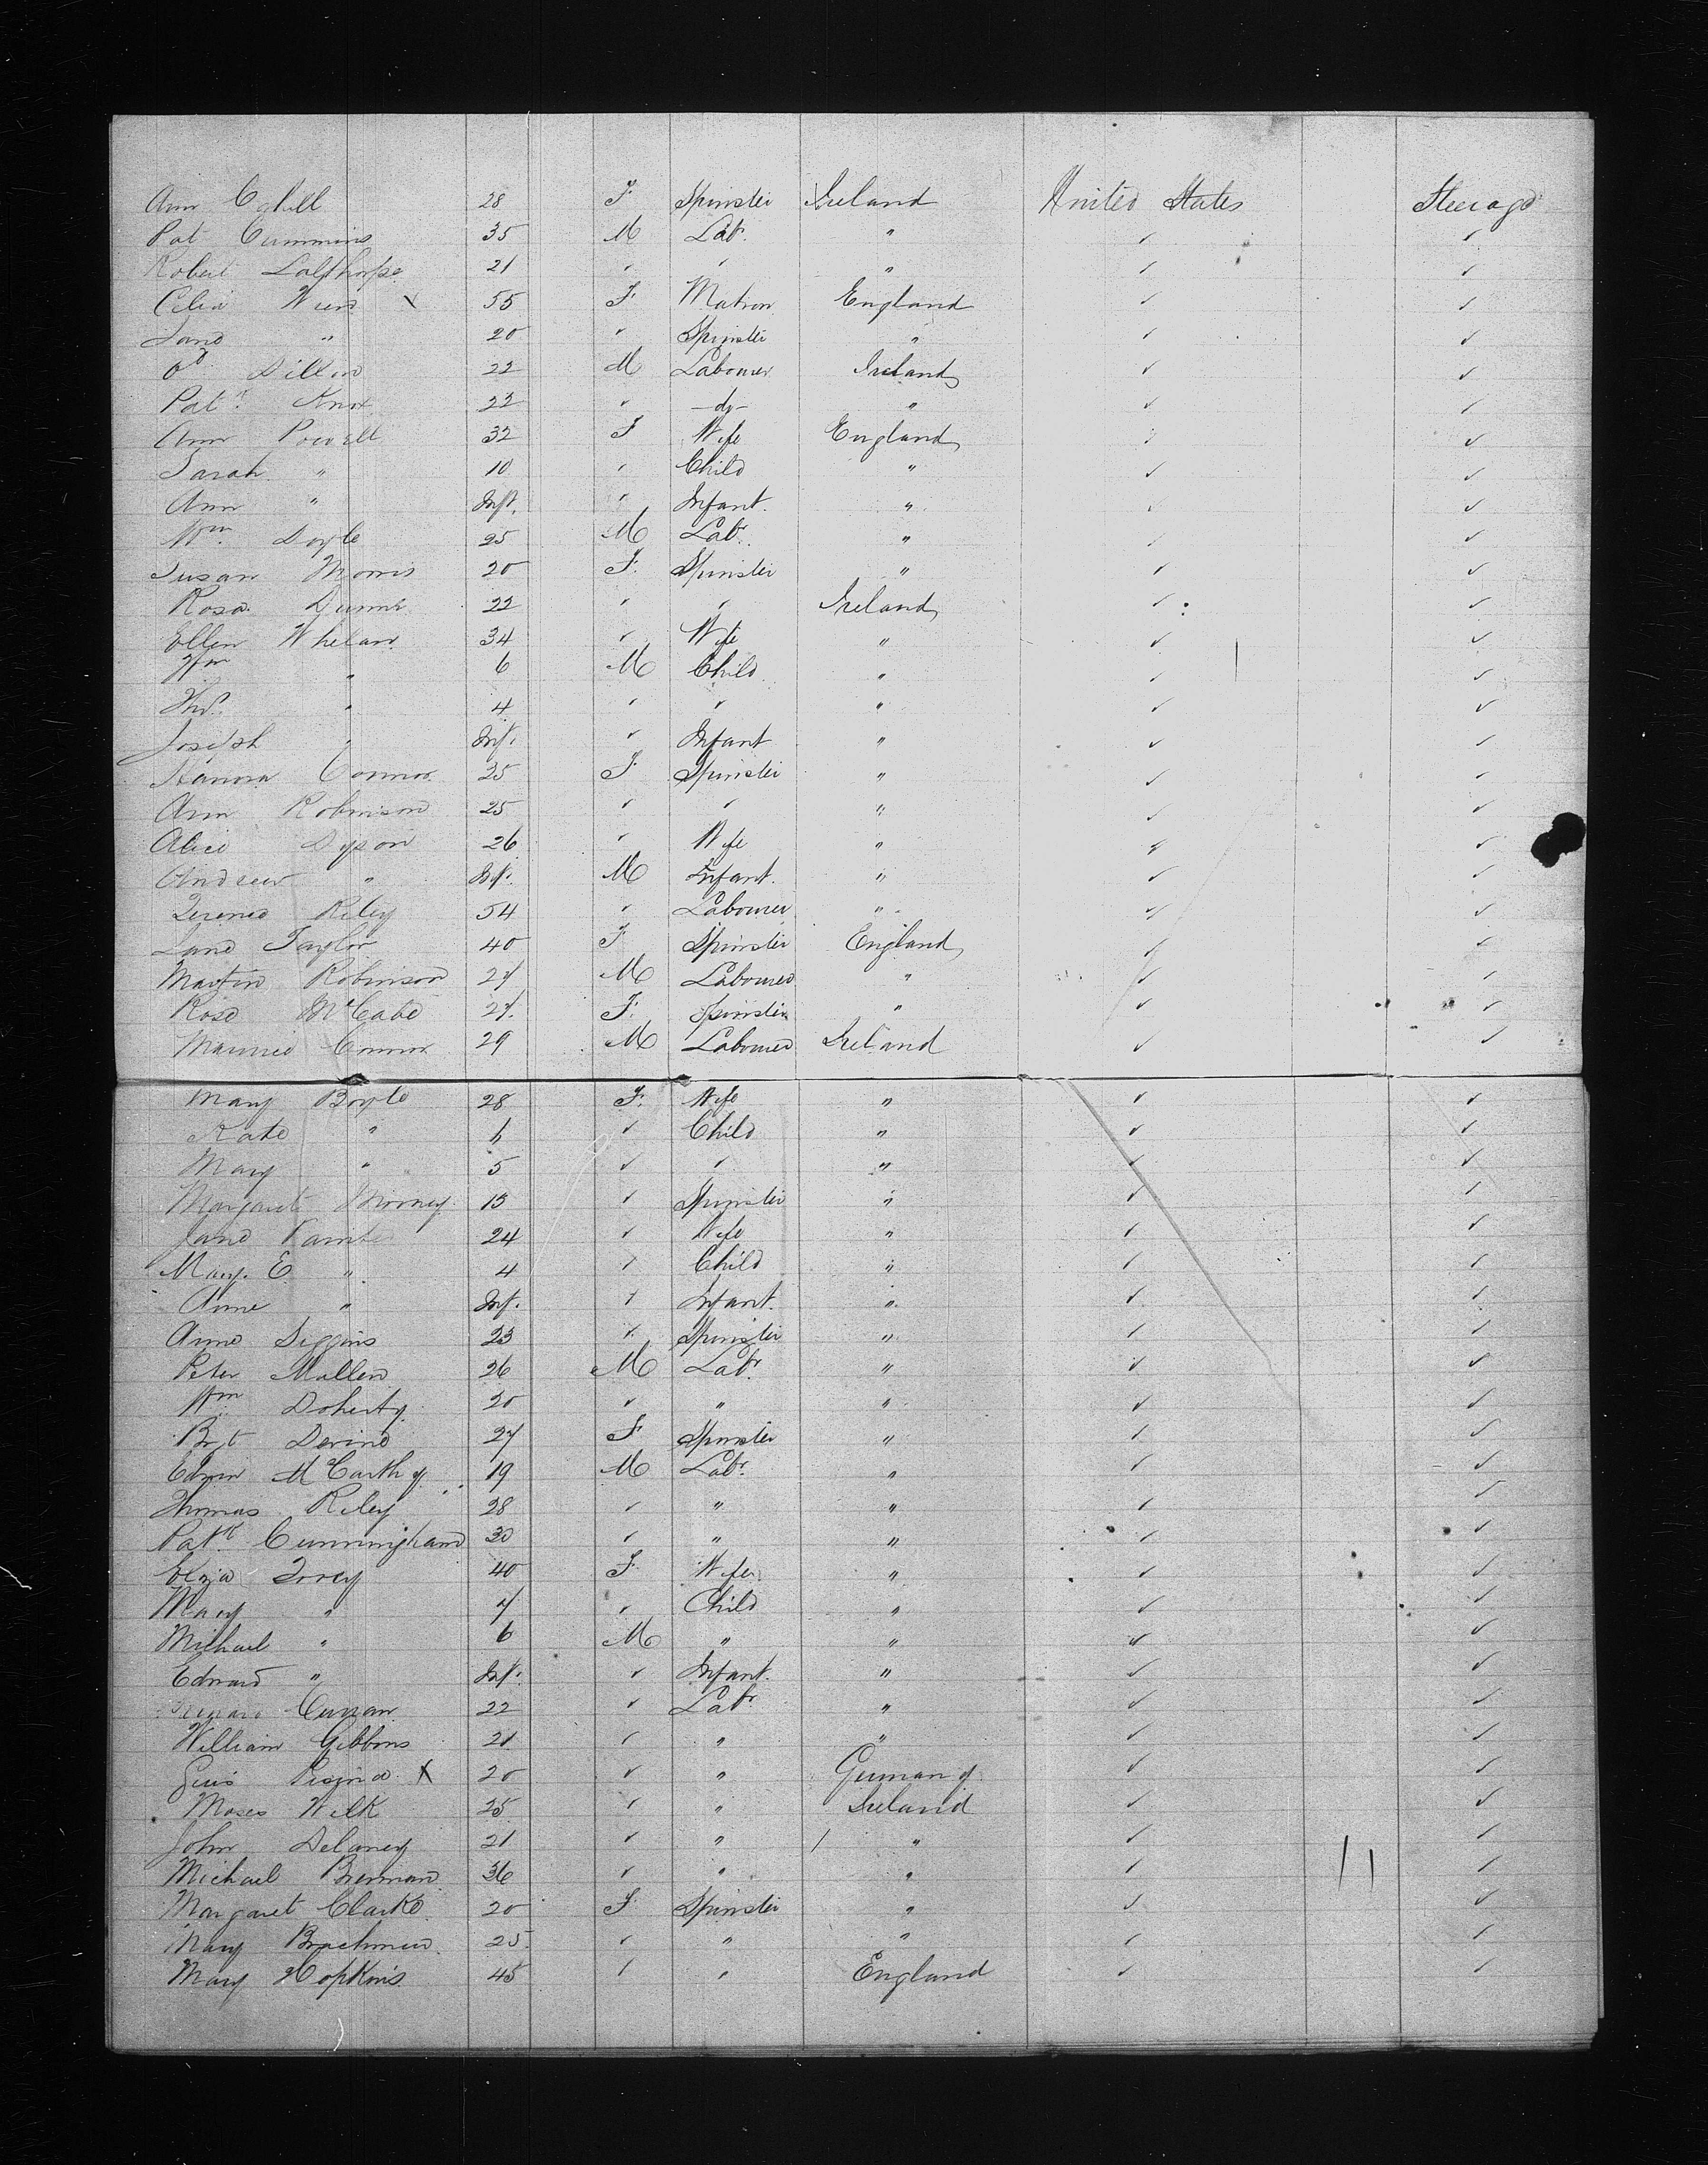 Ann Cahill 28 F. Spinster Ireland United States Steerage
Pat Cummins 35 M Labr. " ✓ ✓
Robert 21 ✓ ✓ " ✓ ✓
Celia X 55 F. Matron England ✓ ✓
Jane " 20 ✓ Spinster " ✓ ✓
Dillon 22 M Labourer Ireland ✓ ✓
Patk. Knox 22 ✓ -do- " ✓ ✓
Ann Powell 32 F Wife England ✓ ✓
Sarah " 10 ✓ Child " ✓ ✓
Ann " Inft. ✓ Infant. " ✓ ✓
Wm. Doyle 25 M Labr. " ✓ ✓
Susan Morris 20 F. Spinster " ✓ ✓
Rosa Dunne 22 ✓ ✓ Ireland ✓ ✓
Ellen Whelan 34 ✓ Wife " ✓ ✓
Wm " 6 M Child " ✓ ✓
Thos. " 4 ✓ ✓ " ✓ ✓
Joseph " Inf. ✓ Infant " ✓ ✓
Hanora Connor 25 F. Spinster " ✓ ✓
Ann Robinson 25 ✓ ✓ " ✓ ✓
Alice Dyson 26 ✓ Wife " ✓ ✓
Andrew " Inf. M Infant. " ✓ ✓
Terence Riley 54 ✓ Labourer " ✓ ✓
Jane Taylor 40 F Spinster England ✓ ✓
Martin Robinson 27 M Labourer " ✓ ✓
Rose McCabe 27. F. Spinster " ✓ ✓
Maurice Connor 29 M Labourer Ireland ✓ ✓
Mary Boyle 28 F. Wife " ✓ ✓
Kate " ✓ Child " ✓ ✓
Mary " 5 ✓ ✓ " ✓ ✓
Margaret 15 ✓ Spinster " ✓ ✓
Jane 24 ✓ Wife " ✓ ✓
Mary E " 4 ✓ Child " ✓ ✓
Anne " Inf. ✓ Infant. " ✓ ✓
Anne Diggins 23 ✓ Spinster " ✓ ✓
Peter Mullen 26 M Labr. " ✓ ✓
Wm Doherty 20 ✓ " " ✓ ✓
Bgt Devine 27 F Spinster " ✓ ✓
Edwin McCarthy 19 M Labr. " ✓ ✓
Thomas Riley 28 ✓ " " ✓ ✓
Patk. Cunningham 30 ✓ " " ✓ ✓
Eliza 40 F. Wife " ✓ ✓
Mary " 7 ✓ Child " ✓ ✓
Michael " 6 M " " ✓ ✓
Edward " Inf. ✓ Infant. " ✓ ✓
Curran 22 ✓ Labr " ✓ ✓
William Gibbons 21 ✓ " " ✓ ✓
X 20 ✓ " Germany ✓ ✓
Moses Wilk 25 ✓ " Ireland ✓ ✓
John Delaney 21 ✓ " " ✓ ✓
Michael Brennan 36 ✓ " " ✓ ✓
Margaret Clarke 20 F Spinster " ✓ ✓
Mary 25 ✓ " " ✓ ✓
Mary Hopkins 45 ✓ " England ✓ ✓